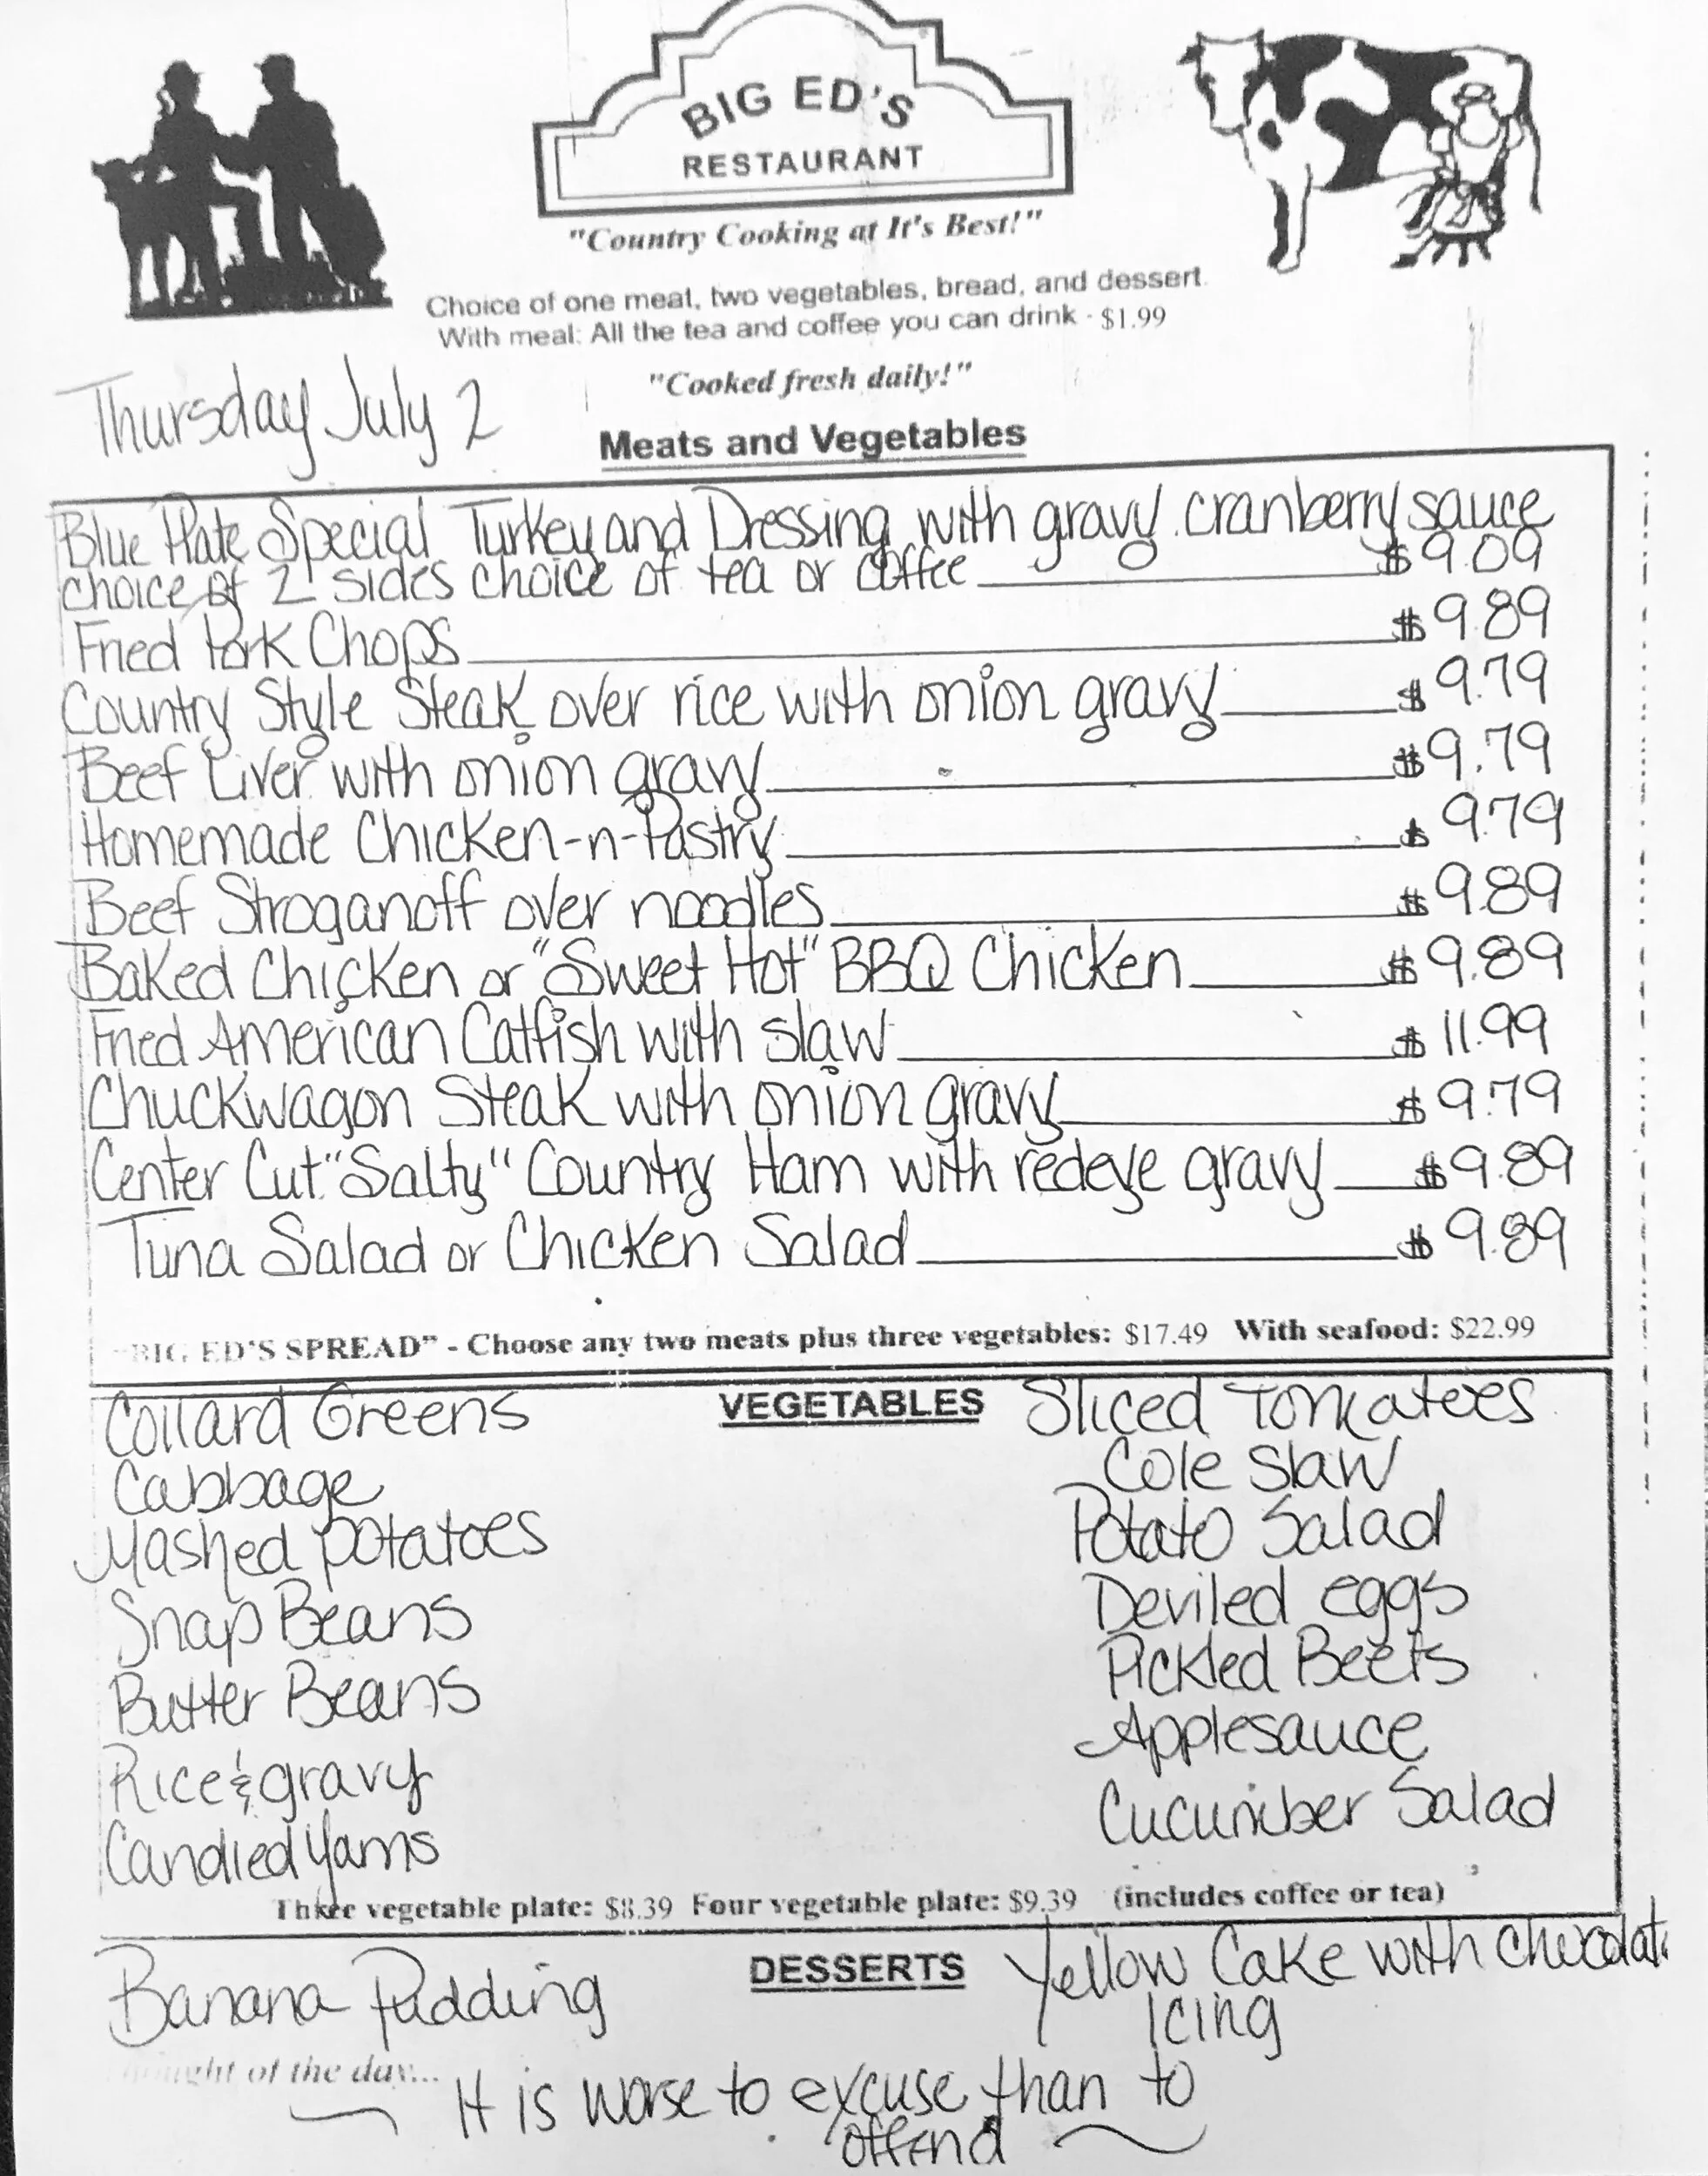 BIG ED'S
RESTAURANT
"Country Cooking at It's Best!"
Choice of one meat, two vegetables, bread, and dessert.
With meal: All the tea and coffee you can drink - $1.99
"Cooked fresh daily!"
Thursday July 2
Meats and Vegetables
Blue Plate Special Turkey and Dressing with gravy cranberry sauce
choice of 2 sides choice of tea or coffee $9.09
Fried Pork Chops $9.89
Country Style Steak over rice with onion gravy $9.79
Beef Liver with onion gravy $9.79
Homemade Chicken-n-Pastry $9.79
Beef Stroganoff over noodles $9.89
Baked Chicken or "Sweet Hot" BBQ Chicken $9.89
Fried American Catfish with slaw $11.99
Chuckwagon Steak with onion gravy $9.79
Center Cut "Salty" Country Ham with redeye gravy $9.89
Tuna Salad or Chicken Salad $9.89
"BIG ED'S SPREAD" - Choose any two meats plus three vegetables: $17.49 With seafood: $22.99
VEGETABLES
Collard Greens
Cabbage
Mashed potatoes
Snap Beans
Butter Beans
Rice & gravy
Candied Yams
Sliced Tomatoes
Cole Slaw
Potato Salad
Deviled eggs
Pickled Beets
Applesauce
Cucumber Salad
Three vegetable plate: $8.39 Four vegetable plate: $9.39 (includes coffee or tea)
DESSERTS
Banana Pudding
Yellow Cake with chocolate
Icing
Thought of the day...
It is worse to excuse than to
offend